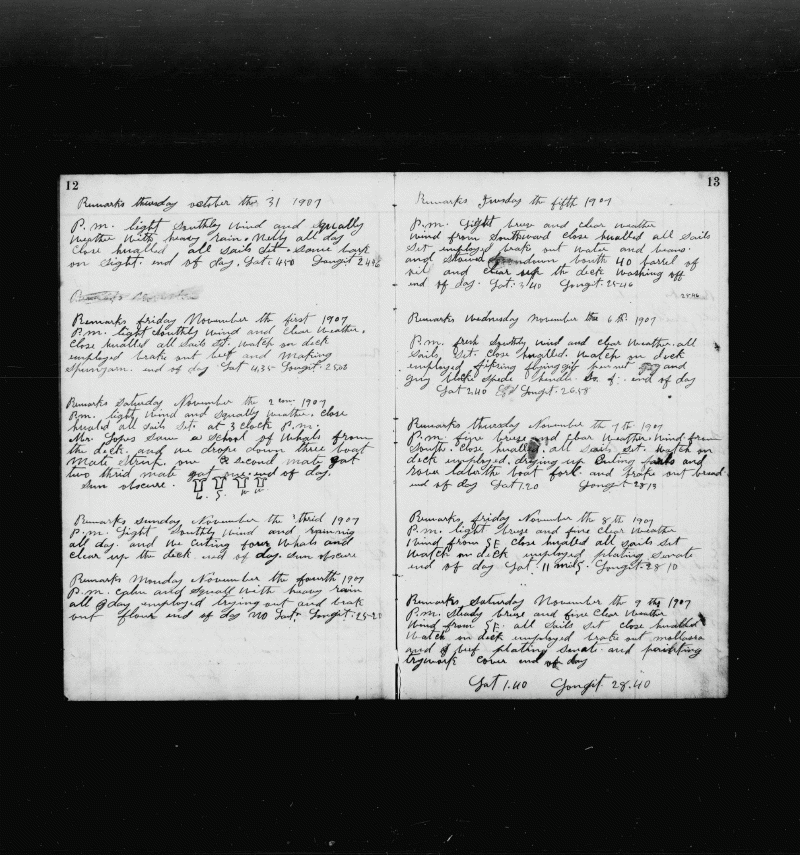 12
Remarks thursday october the 31 1907
P.m. light Southly Wind and Squally
Weather With heavy rain. Misty all day
Close hualled all Sails Sit. Some bark
on sight. end of day. Lat: 4.50 Longit 24
Remarks friday November the first 1907
P.m. light Southly Wind and Clear Weather.
Close hualled all Sails Sit. Watch on deck
employed brake out beef and Making
Spunyarn. end of day Lat 4.35 Longit. 25.00
Remarks Saturday November the 2 1907
P.m. light Wind and Squally Weather. Close
hualed all sails Sit. at 3 clock P.m.
Mr. Lopes Saw a School of Whals from
the deck. and we drope down three boat
Mate Struk one & second mate gat
two thrid mate gat one. end of day.
Sun obscure.
Remarks Sunday November the thrid 1907
P.m. Light Southly Wind and raining
all day. and We Cuting four Whals and
Clear up the deck end of day. Sun obscure
Remarks Monday November the fourth 1907
P.m. Calm and Squall With heavy rain
all day employed trying out and brak
out flour end of day no Lat. Longit. 25-20
13
Remarks Tuesday the fifth 1907
P.m. Light breze and clear Weather
Wind from Southward Close hualled all Sails
Sit employed brake out Water and beans.
and Stowd down bouth 40 barrel of
oil and clear up the deck Washing off
end of day. Lat. 3/40 Longit. 25-46
25.46
Remarks Wednesday november the 6th 1907
P.m. fresh Southly Wind and Clear Weather. all
Sails Sit. Close hualled. Watch on deck
employed fitring flying gib pennet and
end of day
Lat 2.40 Longit. 26.58
Remarks thursday November the 7th 1907
P.m. fine breze and Clear Weather. Wind from
South. Close hualled. all Sails Sit. Watch on
deck employed. drying up Boiling and
Over labarth boat fork. and brake out bread
end of day Lat 1.20 Longit 28 13
Remarks friday November the 8th 1907
P.m. light breze and fine Clear Weather
Wind from SE. Close hualled all Sails Sit
Watch on deck employed plating Senate
end of day Lat. 11 mils. Longit. 28 10
Remarks Saturday November the 9 th 1907
P.m. Steady breze and fine Clear Weather
Wind from SE. all Sails Sit Close hualled
Watch on deck employed brake out mollasses
and beef plating Senate. and painting
trywork Cover end of day
Lat 1.40 Longit. 28.40